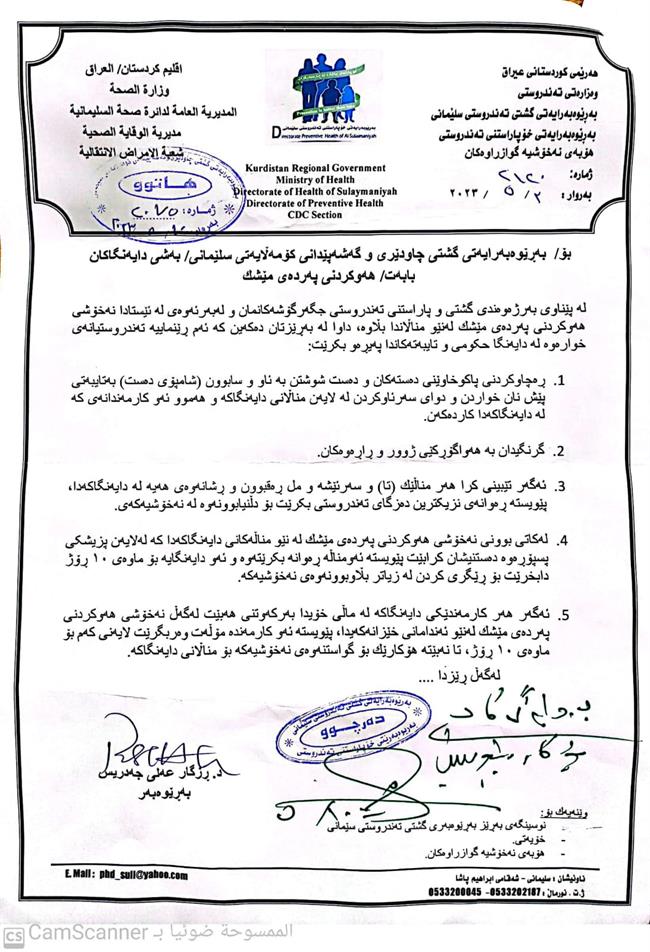 اقليم كردستان/ العراق
وزارة الصحة
المديرية العامة لدائرة صحة السليمانية
مديرية الوقاية الصحية
شعبة الامراض الانتقالية
Directorate Preventive Health Of Al Sulaymaniyah
Kurdistan Regional Government
Ministry of Health
Directorate of Health of Sulaymaniyah
Directorate of Preventive Health
CDC Section
هەرێمی کوردستانی عێراق
وەزارەتی تەندروستی
بەڕێوەبەرایەتی گشتی تەندروستی سلێمانی
بەڕێوەبەرایەتی خۆپاراستنی تەندروستی
هۆبەی نەخۆشیە گوازراوەکان
ژمارە: ٢١٢٠
بەروار: ٢ / ٥ / ٢٠٢٣
هاتوو
ژمارە:
بەروار
بۆ/ بەڕێوەبەرایەتی گشتی چاودێری و گەشەپێدانی کۆمەڵایەتی سلێمانی/ بەشی دایەنگاکان
بابەت/ هەوکردنی پەردەی مێشك
لە پێناوی بەرژەوەندی گشتی و پاراستنی تەندروستی جگەرگۆشەکانمان و لەبەرئەوەی لە ئێستادا نەخۆشی
هەوکردنی پەردەی مێشك لەنێو مناڵاندا بڵاوە، داوا لە بەڕێزتان دەکەین کە ئەم ڕێنماییە تەندروستیانەی
خوارەوە لە دایەنگا حکومی و تایبەتەکاندا پەیڕەو بکرێت:
1. ڕەچاوکردنی پاکوخاوێنی دەستەکان و دەست شوشتن بە ئاو و سابوون (شامپۆی دەست) بەتایبەتی
پێش نان خواردن و دوای سەرئاوکردن لە لایەن مناڵانی دایەنگاکە و هەموو ئەو کارمەندانەی کە
لە دایەنگاکەدا کاردەکەن.
2. گرنگیدان بە هەواگۆڕکێی ژوور و ڕاڕەوەکان.
3. ئەگەر تێبینی کرا هەر مناڵێك (تا) و سەرئێشە و مل ڕەقبوون و ڕشانەوەی هەیە لە دایەنگاکەدا،
پێویستە ڕەوانەی نزیکترین دەزگای تەندروستی بکرێت بۆ دڵنیابوونەوە لە نەخۆشیەکەی.
4. لەکاتی بوونی نەخۆشی هەوکردنی پەردەی مێشك لە نێو مناڵەکانی دایەنگاکەدا کە لەلایەن پزیشکی
پسپۆڕەوە دەستنیشان کرابێت پێویستە ئەومناڵە ڕەوانە بکرێتەوە و ئەو دایەنگایە بۆ ماوەی ١٠ ڕۆژ
دابخرێت بۆ ڕێگری کردن لە زیاتر بڵاوبوونەوەی نەخۆشیەکە.
5. ئەگەر هەر کارمەندێکی دایەنگاکە لە ماڵی خۆیدا بەرکەوتنی هەبێت لەگەڵ نەخۆشی هەوکردنی
پەردەی مێشك لەنێو ئەندامانی خێزانەکەیدا، پێویستە ئەو کارمەندە مۆڵەت وەربگرێت لایەنی کەم بۆ
ماوەی ١٠ ڕۆژ، تا نەبێتە هۆکارێك بۆ گواستنەوەی نەخۆشیەکە بۆ مناڵانی دایەنگاکە.
لەگەڵ ڕێزدا ....
بەڕێوەبەرایەتی گشتی تەندروستی سلێمانی
دەرچوو
بەڕێوەبەرێتی خۆپاراستنی تەندروستی
د. ڕزگار عەلی جەدریس
بەڕێوەبەر
وێنەیەك بۆ:
- نوسینگەی بەڕێز بەڕێوەبەری گشتی تەندروستی سلێمانی
- خۆیەتی.
- هۆبەی نەخۆشیە گوازراوەکان.
E.Mail : phd_suli@yahoo.com
ناونیشان : سلێمانی - شەقامی ابراهیم پاشا
ژ.ت . نۆرماڵ: 0533202187- 0533200045
CS CamScanner الممسوحة ضوئيا بـ